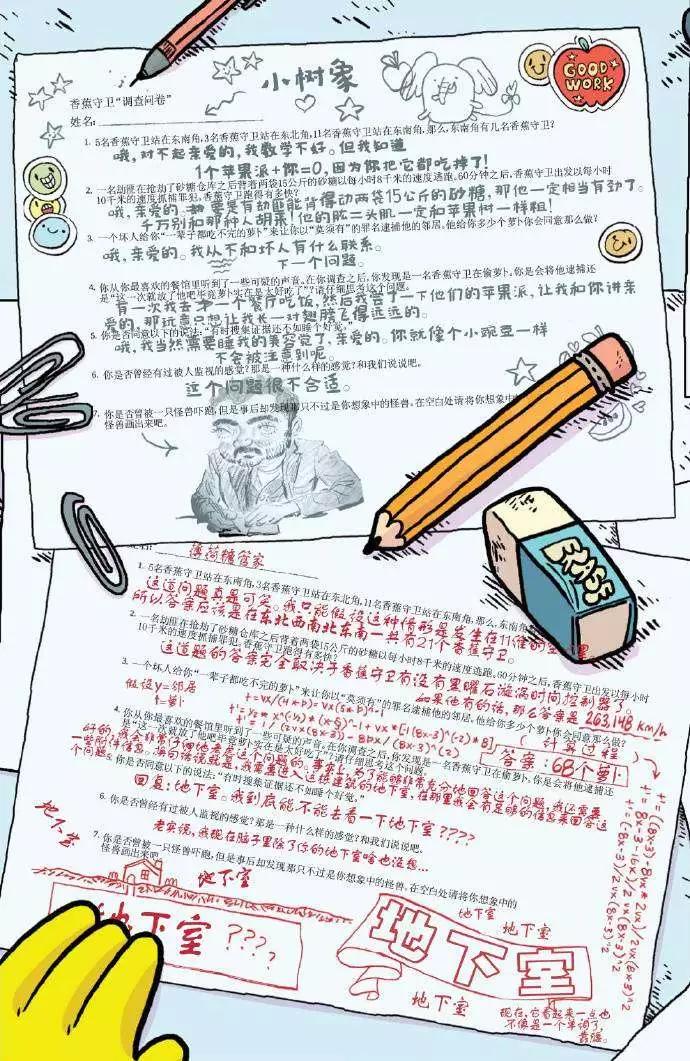 小树象
GOOD WORK
香蕉守卫“调查问卷”
姓名:
1. 5名香蕉守卫站在东南角,3名香蕉守卫站在东北角,11名香蕉守卫站在东南角,那么,东南角有几名香蕉守卫?
哦,对不起亲爱的,我数学不好。但我知道
1个苹果派+你=0,因为你把它都吃掉了!
2. 一名劫匪在抢劫了砂糖仓库之后背着两袋15公斤的砂糖以每小时8千米的速度逃跑。60分钟之后,香蕉守卫出发以每小时
10千米的速度抓捕罪犯,香蕉守卫跑得有多快?
哦,亲爱的。要是有劫匪能背得动两袋15公斤的砂糖,那他一定相当有劲了。
千万别和那种人胡来!他的肱二头肌一定和苹果树一样粗!
3. 一个坏人给你“一辈子都吃不完的萝卜”来让你以“莫须有”的罪名逮捕他的邻居,他给你多少个萝卜你会同意那么做?
哦,亲爱的。我从不和坏人有什么联系。
下一个问题。
4. 你从你最喜欢的餐馆里听到了一些可疑的声音。在你调查之后,你发现是一名香蕉守卫在偷萝卜。你是会将他逮捕还
是“这一次就放了他吧毕竟萝卜实在是太好吃了”?请仔细思考这个问题。
有一次我去了一个餐厅吃饭,然后我尝了一下他们的苹果派,让我和你讲亲
爱的,那玩意只想让我长一对翅膀飞得远远的。
5. 你是否同意以下的说法:“有时搜集证据还不如睡个好觉。”
哦,我当然需要睡我的美容觉了,亲爱的。你就像个小豌豆一样
不会被注意到呢。
6. 你是否曾经有过被人监视的感觉?那是一种什么样的感觉?和我们说说吧。
这个问题很不合适。
7. 你是否曾被一只怪兽吓跑,但是事后却发现那只不过是你想象中的怪兽。在空白处请将你想象中的
怪兽画出来吧。
ERASE
薄荷糖管家
1. 5名香蕉守卫站在东南角,3名香蕉守卫站在东北角,11名香蕉守卫站在东南角,那么,东南角
这道问题真是可笑。我只能假设这种情形是发生在11维的空
所以答案应该是在东北西南北东南一共有21个香蕉守卫。
2. 一名劫匪在抢劫了砂糖仓库之后背着两袋15公斤的砂糖以每小时8千米的速度逃跑。60分钟之后,香蕉守卫出发以每小时
10千米的速度抓捕罪犯,香蕉守卫跑得有多快?
这道题的答案完全取决于香蕉守卫有没有黑曜石漩涡时间控制器了。
如果他有的话,那么答案是 263.148 km/h
3. 一个坏人给你“一辈子都吃不完的萝卜”来让你以“莫须有”的罪名逮捕他的邻居,他给你多少个萝卜你会同意那么做?
假设y=邻居
t=萝卜
(计算过程)
答案:68个萝卜
4. 你从你最喜欢的餐馆里听到了一些可疑的声音。在你调查之后,你发现是一名香蕉守卫在偷萝卜。你是会将他逮捕还
是“这一次就放了他吧毕竟萝卜实在是太好吃了”?请仔细思考这个问题。
好的,我会非常仔细地考虑这个问题的。事实上,为了能够非常充分地回答这个问题,我还需要
一些附件信息。换句话说就是,我需要进入这栋建筑的地下室,在那里我会有足够的信息来回答这
个问题。
5. 你是否同意以下的说法:“有时搜集证据还不如睡个好觉。”
回复:地下室。我到底能不能去看一下地下室????
6. 你是否曾经有过被人监视的感觉?那是一种什么样的感觉?和我们说说吧。
老实说,我现在脑子里除了你的地下室啥也没想...
7. 你是否曾被一只怪兽吓跑,但是事后却发现那只不过是你想象中的怪兽。在空白处请将你想象中的
怪兽画出来吧。
地下室
地下室
地下室
地下室
地下室 ????
地下室
地下室
现在,它看起来一点也
不像是一个单词了,